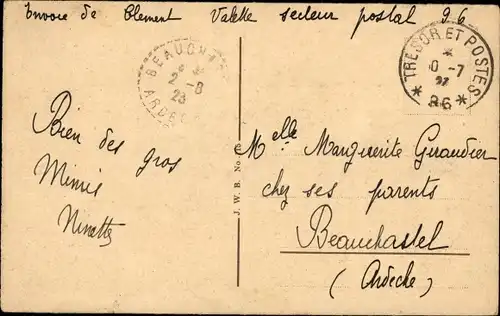 Envoie de Clement Valette secteur postal 96
BEAUCHA
2 -8
23
ARDEC
* TRESOR ET POSTES *
*
0 -7
96
Bien des gros
Mimis
Ninette
J. W. B. No.
Melle Marguerite Giraudier
chez ses parents
Beauchastel
(Ardèche)